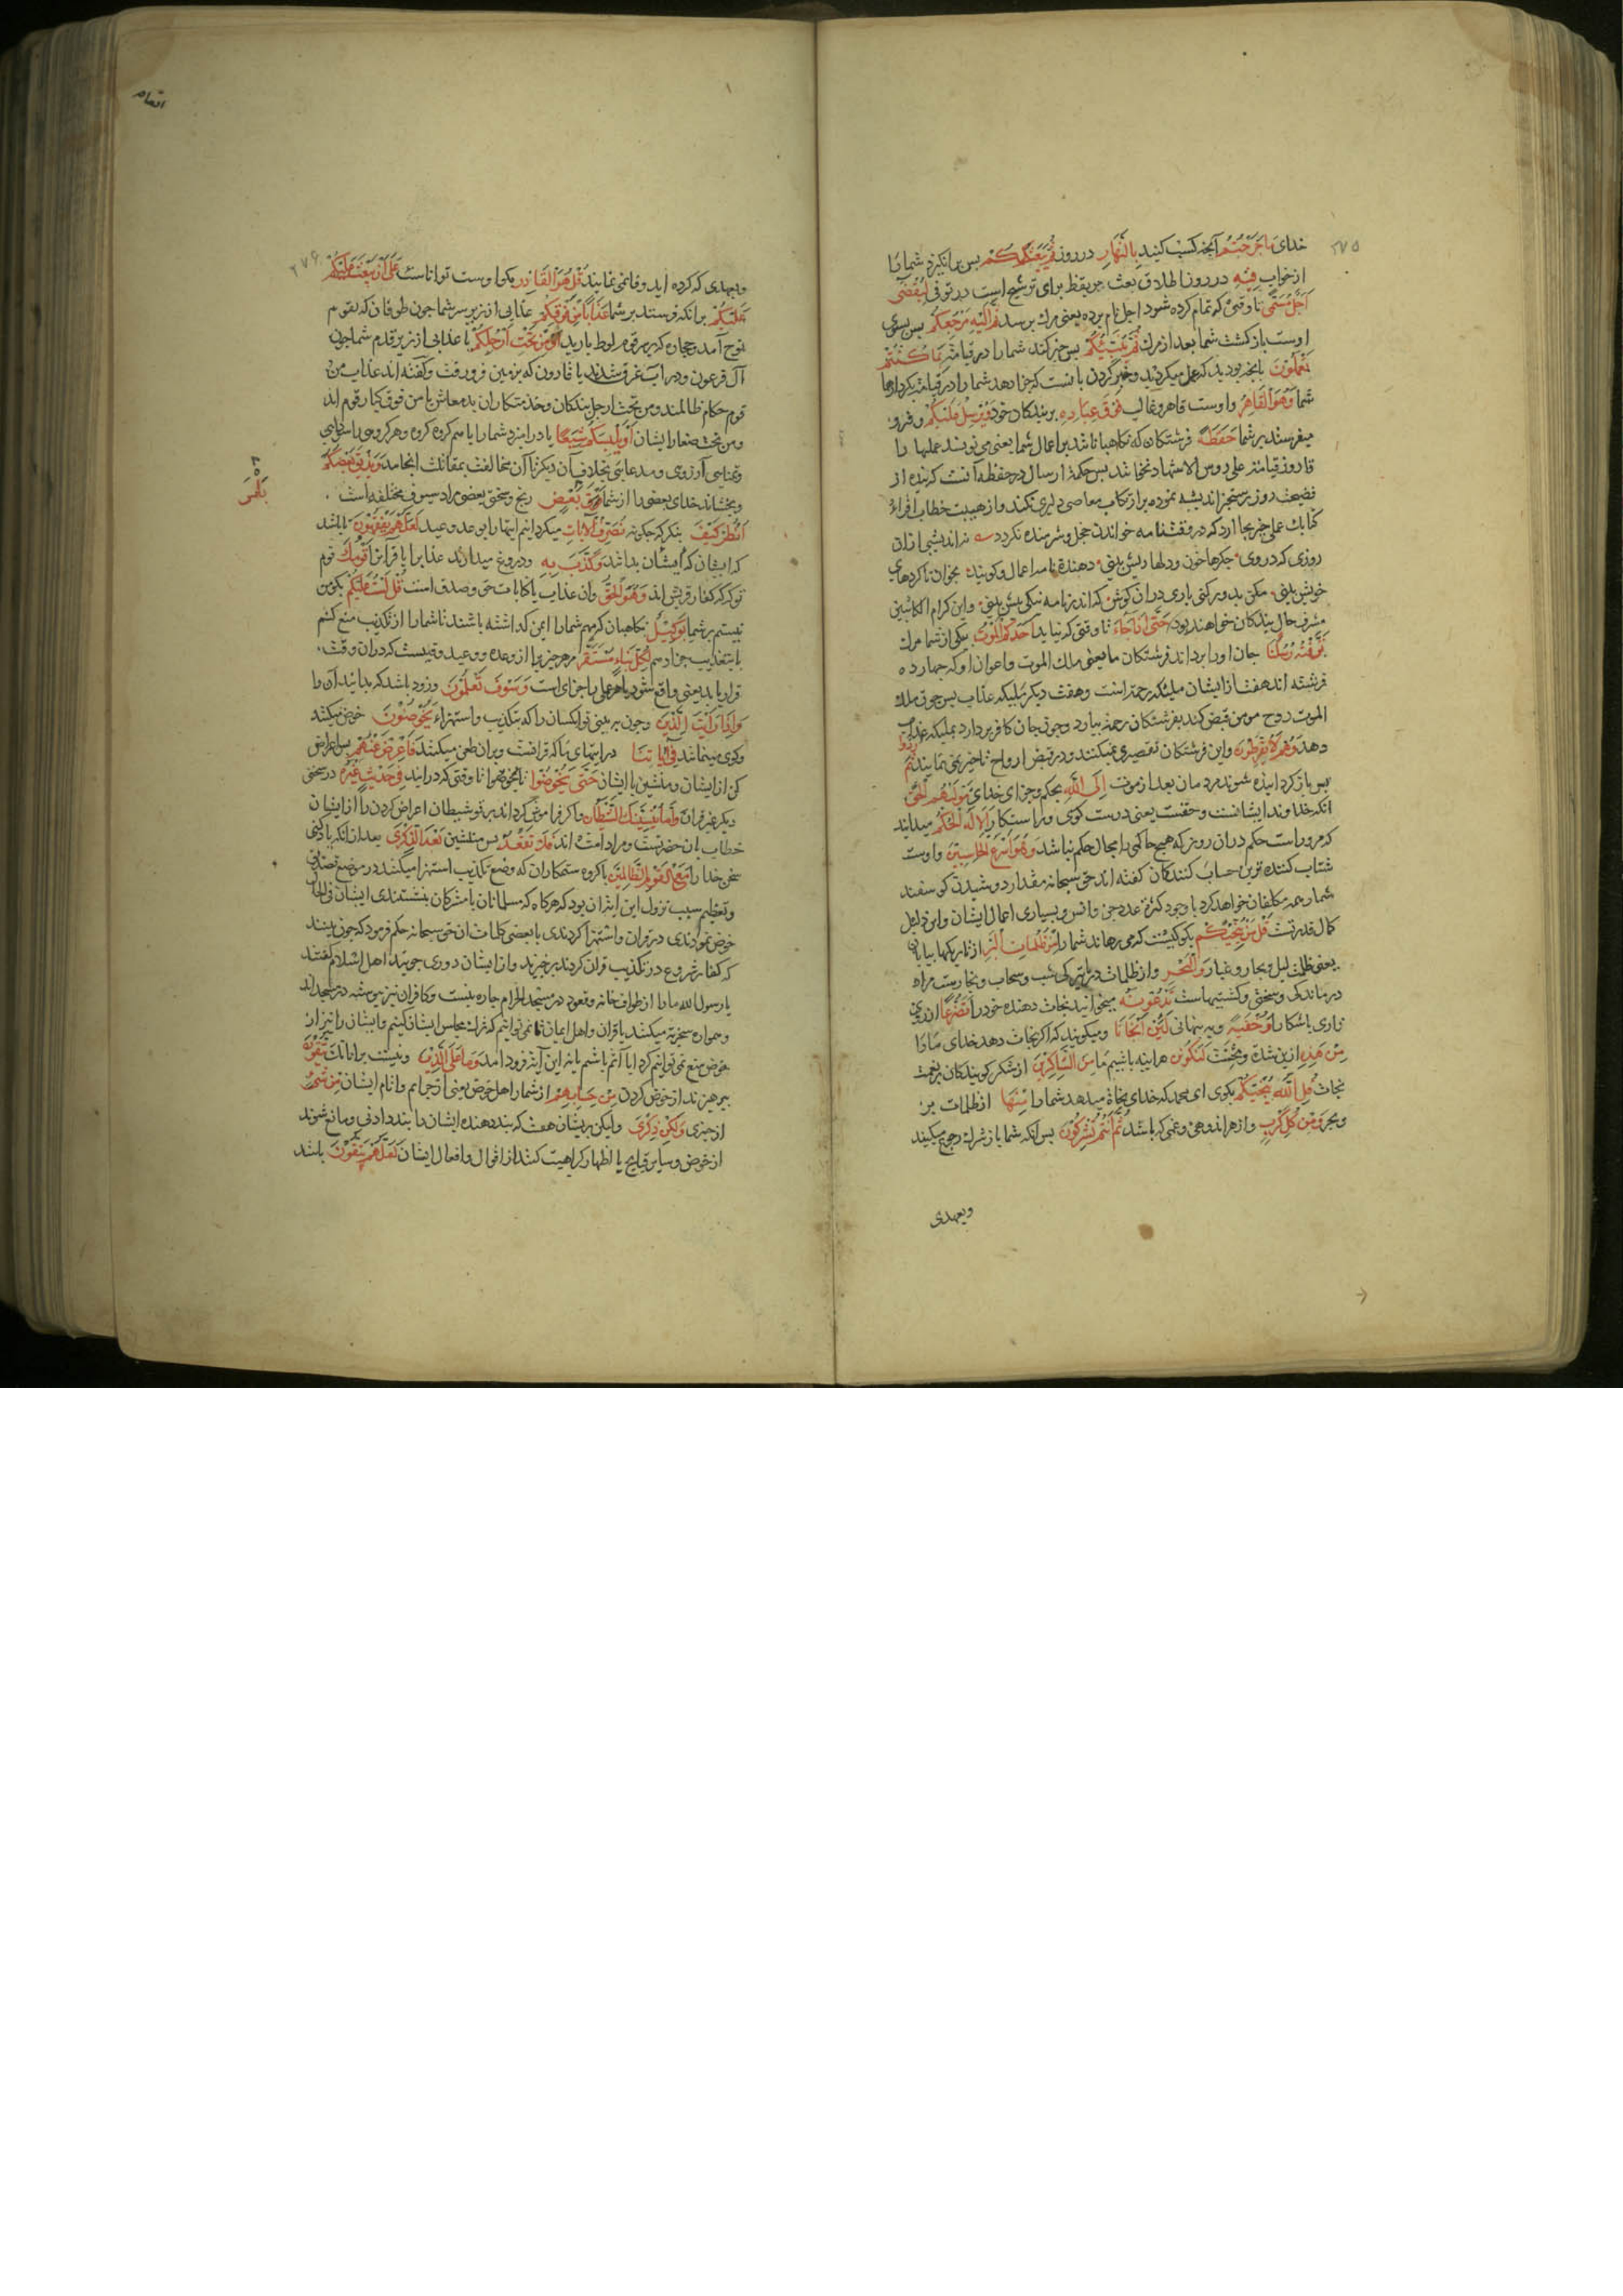 ٢٧٥
خدای ما جَرَحْتُمْ آنجه کسب کنید بِالنَّهَارِ در روز ثُمَّ يَبْعَثُكُمْ بس بر انکیزد شما را
از خواب فِيهِ در روز اطلاق بعث بر یقظ برای ترشیح است در توفی لِيُقْضَى
أَجَلٌ مُسَمًّى تا وقتی که تمام کرده شود اجل نام برده یعنی مرک برسد ثُمَّ إِلَيْهِ مَرْجِعُكُمْ بس بسوی
اوست بازکشت شما بعد از مرک ثُمَّ يُنَبِّئُكُمْ بس خبر کند شما را در قیامت بِمَا كُنْتُمْ
تَعْمَلُونَ بانجه بودید که عمل میکردید و خبر کردن بانست که جزا دهد شما را در قیامت بکردارها
شما وَهُوَ الْقَاهِرُ و اوست قاهر و غالب فَوْقَ عِبَادِهِ بر بندکان خود وَيُرْسِلُ عَلَيْكُمْ و فرو
میفرستد بر شما حَفَظَةً فرشتکان که نکاهبانا شد بر اعمال شما یعنی می نویسند عملها را
تا روز قیامت علی رؤس الاشهاد نخواشد بس حکمة ارسال در حفظه آنست که بنده از
فضیحت روز رستخیز اندیشه نموده بر ارتکاب معاصی دلیری نکند و از هیبت خطاب اقراء
کتابک عملی جز بجا آرد که در وقت نامه خواندن خجل و شرمنده نکردد سه نه اندیشی از ان
روزی که در وی جکرها خون و دلها ریش بینی دهندت نامه اعمال و کویند بخوان تا کردهای
خویش بینی مکن بد ور کنی باری در ان کوش که اندر نامه نیکی بیش بینی و این کرام الکاتبین
مشرف حال بندکان خواهند بود حَتَّى إِذَا جَاءَ تا وقتی که بیاید أَحَدَكُمُ الْمَوْتُ بیکی از شما مرک
تَوَفَّتْهُ رُسُلُنَا جان او را بردارند فرشتکان ما یعنی ملک الموت و اعوان او که جهارده
فرشته اند هفت از ایشان ملیئکه رحمة است و هفت دیکر ملیکه عذاب بس جون ملک
الموت روح مومن قبض کند بفرشتکان رحمة بسپارد و جون جان کافر بردارد بملیکه عذاب
دهد وَهُمْ لَا يُفَرِّطُونَ و این فرشتکان تقصیری نمیکنند و در قبض ارواح تاخیر نمی نمایند ثُمَّ رُدُّوا
بس باز کردانیده شوند مردمان بعد از موت إِلَى اللَّهِ بحکم و جزای خدای مَوْلَاهُمُ الْحَقِّ
انکه خداوند ایشانست و حقست یعنی درست کوی و راست کار أَلَا لَهُ الْحُكْمُ میدانید
که مر وراست حکم در ان روز که هیج حاکمی را مجال حکم نباشد وَهُوَ أَسْرَعُ الْحَاسِبِينَ و اوست
شتاب کننده ترین حساب کنندکان کفته اند حق سبحانه مقدار دوشیدن کوسفند
شمار همه مکلفان خواهد کرد با وجود کثرة عدد جن و انس و بسیاری اعمال ایشان و این دلیل
کمال قدرتست قُلْ مَنْ يُنَجِّيكُمْ بکو کیست که می رهاند شما را مِنْ ظُلُمَاتِ الْبَرِّ از تاریکیها بیابان
یعنی ظلمت لیل و بخار و غبار وَالْبَحْرِ و از ظلمات دریا تیرکی شب و سحاب و بخارست مراد
درماندکی و سختی و کشتیهاست تَدْعُونَهُ میخوانید نجات دهنده خود را تَضَرُّعًا از روی
زاری باشکار وَخُفْيَةً و به پنهانی لَئِنْ أَنْجَانَا و میکویند که اکر نجات دهد خدای ما را
مِنْ هَذِهِ از ین شدة و محنت لَنَكُونَنَّ هر اینه باشیم ما مِنَ الشَّاكِرِينَ از شکر کویندکان بر نعمت
نجات قُلِ اللَّهُ يُنَجِّيكُمْ بکوی ای محمد که خدای نجاة میدهد شما را مِنْهَا از ظلمات بر
و بحر وَمِنْ كُلِّ كَرْبٍ و از هر اندوهی و غمی که باشد ثُمَّ أَنْتُمْ تُشْرِكُونَ بس انکه شما باز شرک رجوع میکنید
وبعهدی
٢٧۶
وبعهدی که کرده اید وفا نمی نمایید قُلْ هُوَ الْقَادِرُ بکو اوست توانا است عَلَى أَنْ يَبْعَثَ عَلَيْكُمْ
عَلَيْكُمْ بر انکه فرستد بر شما عَذَابًا مِنْ فَوْقِكُمْ عذابی از زبر سر شما جون طوفان که بقوم
نوح آمد و حجاره که بر قوم لوط بارید أَوْ مِنْ تَحْتِ أَرْجُلِكُمْ یا عذابی از زیر قدم شما جون
آل فرعون و در آب غرق شدند یا قارون که بزمین فرو رفت و کفته اند عذاب من
قوم حکام ظالمند و من تحت ارجل بندکان و خدمتکاران بد معاش یا من فوق کبار قوم اند
و من تحت صغار ایشان أَوْ يَلْبِسَكُمْ شِيَعًا یا در امیزد شما را یا هم کروه کروه و هر کروهی را
و تمنایی آرزوی و مدعایی بخلاف آن دیکر تا آن مخالفت بمقاتلت انجامد وَيُذِيقَ بَعْضَكُمْ
و بجشاند خدای بعضی را از شما بَأْسَ بَعْضٍ رنج و سختی بعضی مراد سیوف مختلفه است
بَأْسَ
انْظُرْ كَيْفَ بنکر که جکونه نُصَرِّفُ الْآيَاتِ میکردانیم ایتها را بوعد و وعید لَعَلَّهُمْ يَفْقَهُونَ باشد
که ایشان که ایشان بدانند وَكَذَّبَ بِهِ و دروغ میدارند عذاب را یا قرآن را قَوْمُكَ قوم
تو که کفار قریش اند وَهُوَ الْحَقُّ و ان عذاب یا کتاب حق و صدق است قُلْ لَسْتُ عَلَيْكُمْ بکو من
نیستم بر شما بِوَكِيلٍ نکاهبان که مهم شما را ایمن کداشته باشند تا شما را از تکذیب منع کنم
یا بتعذیب جزا دهم لِكُلِّ نَبَإٍ مُسْتَقَرٌّ مر هر جیزی را از وعده و وعید وقتیست که در ان وقت
قرار یابد یعنی واقع شود یا هر عملی را جزای است وَسَوْفَ تَعْلَمُونَ و زود باشد که بدانید آن را
وَإِذَا رَأَيْتَ الَّذِينَ و جون به بینی تو انکسان را که بتکذیب و استهزاء يَخُوضُونَ خوض میکنند
فِي آيَاتِنَا در ایتهای ما که قرانست و بران طعن میکنند فَأَعْرِضْ عَنْهُمْ بس اعراض
کن از ایشان و منشین با ایشان حَتَّى يَخُوضُوا تا وقتی که در ایند فِي حَدِيثٍ غَيْرِهِ در سخنی
دیکر غیر قران وَإِمَّا يُنْسِيَنَّكَ الشَّيْطَانُ و اکر فراموش کرداند بر تو شیطان اعراض کردن را از ایشان
خطاب بان حضرتست و مراد امت اند فَلَا تَقْعُدْ بس منشین بَعْدَ الذِّكْرَى بعد از انکه یاد کنی
سخن خدا را مَعَ الْقَوْمِ الظَّالِمِينَ با کروه ستمکاران که وضع تکذیب استهزا میکنند در موضع تصدیق
و تعظیم سبب نزول این ایت ان بود که هرکاه که مسلمانان با مشرکان بنشستندی ایشان فی الحال
خوض نمودندی در قران و استهزا کردندی با بعضی کلمات ان حق سبحانه حکم فرمود که جون بینند
که کفار شروع در تکذیب قران کردند برخیزند و از ایشان دوری جویند اهل اسلام کفتند
یا رسول الله ما را از طواف خانه و قعود در مسجد الحرام جاره نیست و کافران نیز پیوسته در مسجد اند
و همواره سخریه میکنند با قران و اهل ایمان ما نمی توانیم که ترک مجالس ایشان کنیم و ایشان را نیز از
خوض منع نمی توانیم کرد ایا آثم باشیم یا نه این آیة فرود امد وَمَا عَلَى الَّذِينَ و نیست بر انانکه يَتَّقُونَ
پرهیزند از خوض کردن مِنْ حِسَابِهِمْ از شمار اهل خوض یعنی از جرایم و اثام ایشان مِنْ شَيْءٍ
از جیزی وَلَكِنْ ذِكْرَى و لیکن بریشان هست که پند دهنده ایشان را پند دادنی و مانع شوند
از خوض و سایر قبایح یا اظهار کراهیت کنند از اقوال و افعال ایشان لَعَلَّهُمْ يَتَّقُونَ باشد